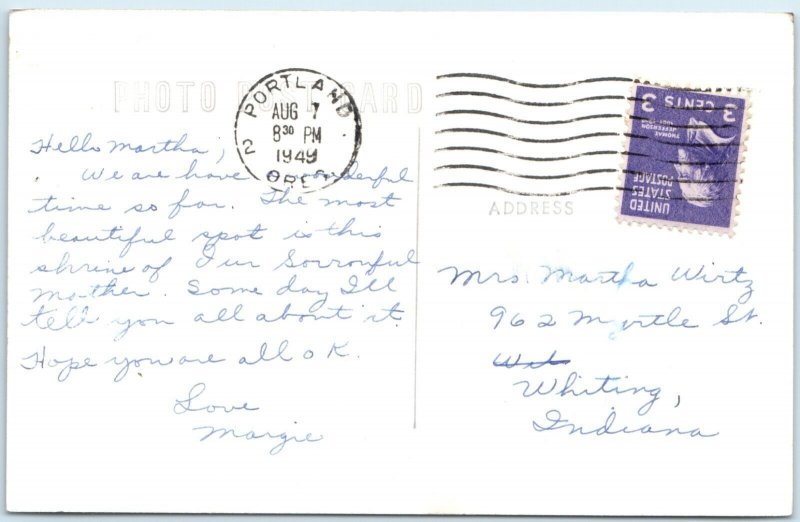 PHOTO POST CARD
PORTLAND
AUG 7
8 30 PM
1949
2
OREG
3 CENTS 3
THOMAS
JEFFERSON
UNITED
STATES
POSTAGE
ADDRESS
Hello Martha,
We are have wonderful
time so far. The most
beautiful spot is this
shrine of Our Sorrowful
Mother. Some day I'll
tell you all about it.
Hope you are all o K.
Love
Margie
Mrs. Martha Wirtz
962 Myrtle St.
Whiting,
Indiana